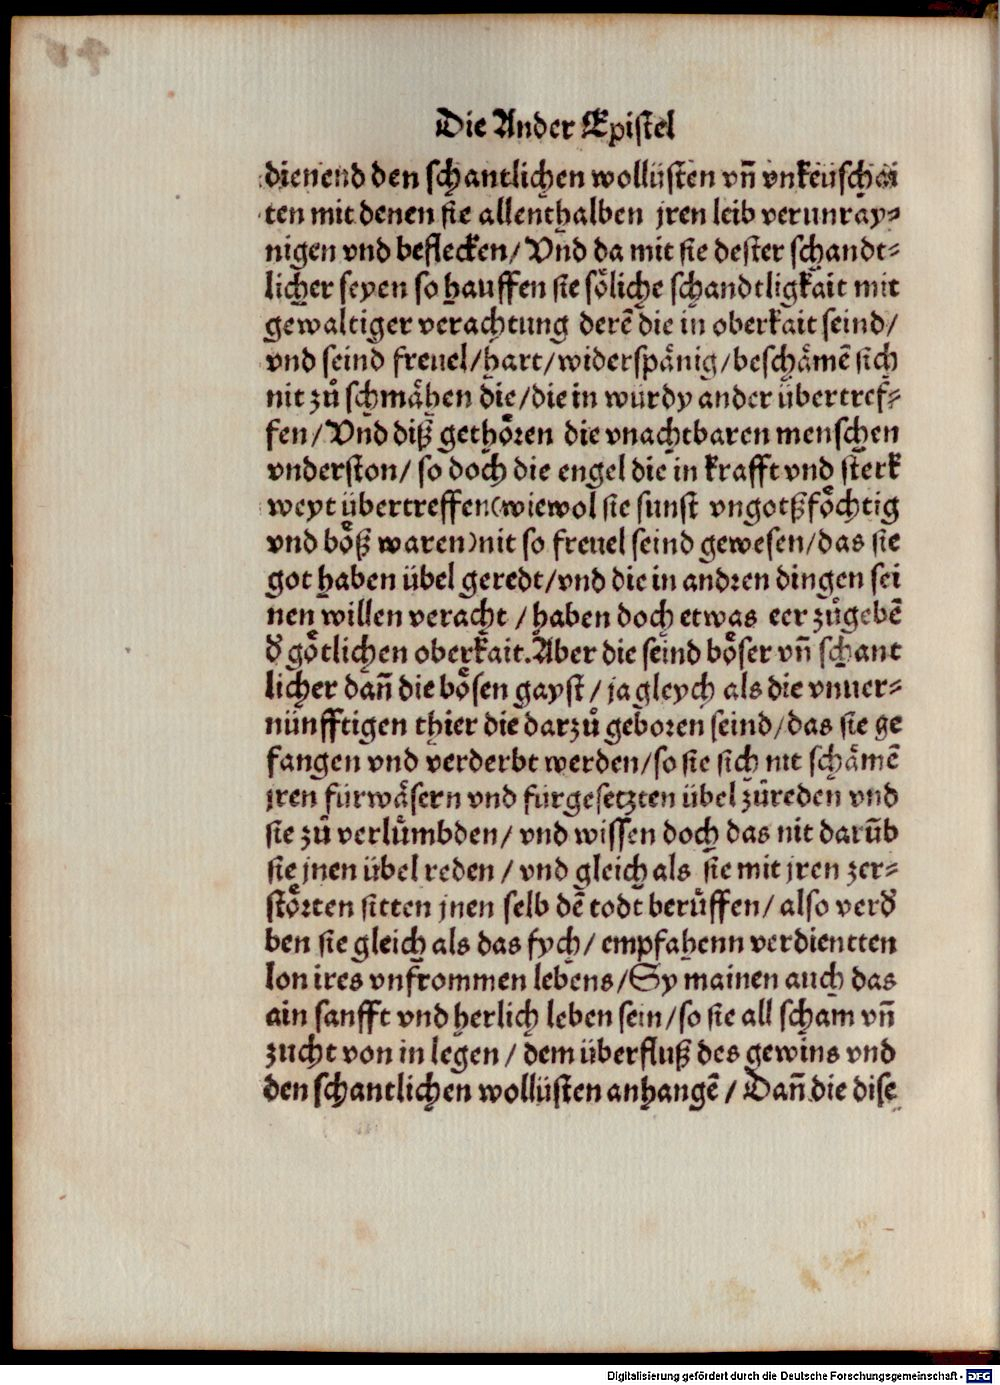 Die Ander Epistel
dienend den schantlichen wollüsten vn̄ vnkeuschai
ten mit denen sie allenthalben jren leib verunray⸗
nigen vnd beflecken/ Vnd da mit sie dester schandt⸗
licher seyen so hauffen sie söliche schandtligkait mit
gewaltiger verachtung derē die in oberkait seind/
vnd seind freuel/hart/widerspänig/beschämē sich
nit zů schmähen die/die in wurdy ander übertref⸗
fen/ Vnd diß gethören die vnachtbaren menschen
vnderston/ so doch die engel die in krafft vnd sterk
weyt übertreffen(wiewol sie sunst vngotßföchtig
vnd böß waren)nit so freuel seind gewesen/das sie
got haben übel geredt/vnd die in andren dingen sei
nen willen veracht / haben doch etwas eer zůgebē
d̕ götlichen oberkait. Aber die seind böser vn̄ schant
licher dan̄ die bösen gayst / ja gleych als die vnuer⸗
nünfftigen thier die darzů geboren seind/das sie ge
fangen vnd verderbt werden/so sie sich nit schämē
jren fürwäsern vnd fürgesetzten übel zůreden vnd
sie zů verlůmbden/ vnd wissen doch das nit darūb
sie jnen übel reden / vnd gleich als sie mit jren zer⸗
störten sitten jnen selb dē todt berůffen/ also verd̕
ben sie gleich als das fych/ empfahenn verdientten
lon ires vnfrommen lebens/Sy mainen auch das
ain sanfft vnd herlich leben sein/so sie all scham vn̄
zucht von in legen / dem überfluß des gewins vnd
den schantlichen wollüsten anhangē / Dan̄ die dise
Digitalisierung gefördert durch die Deutsche Forschungsgemeinschaft - DFG